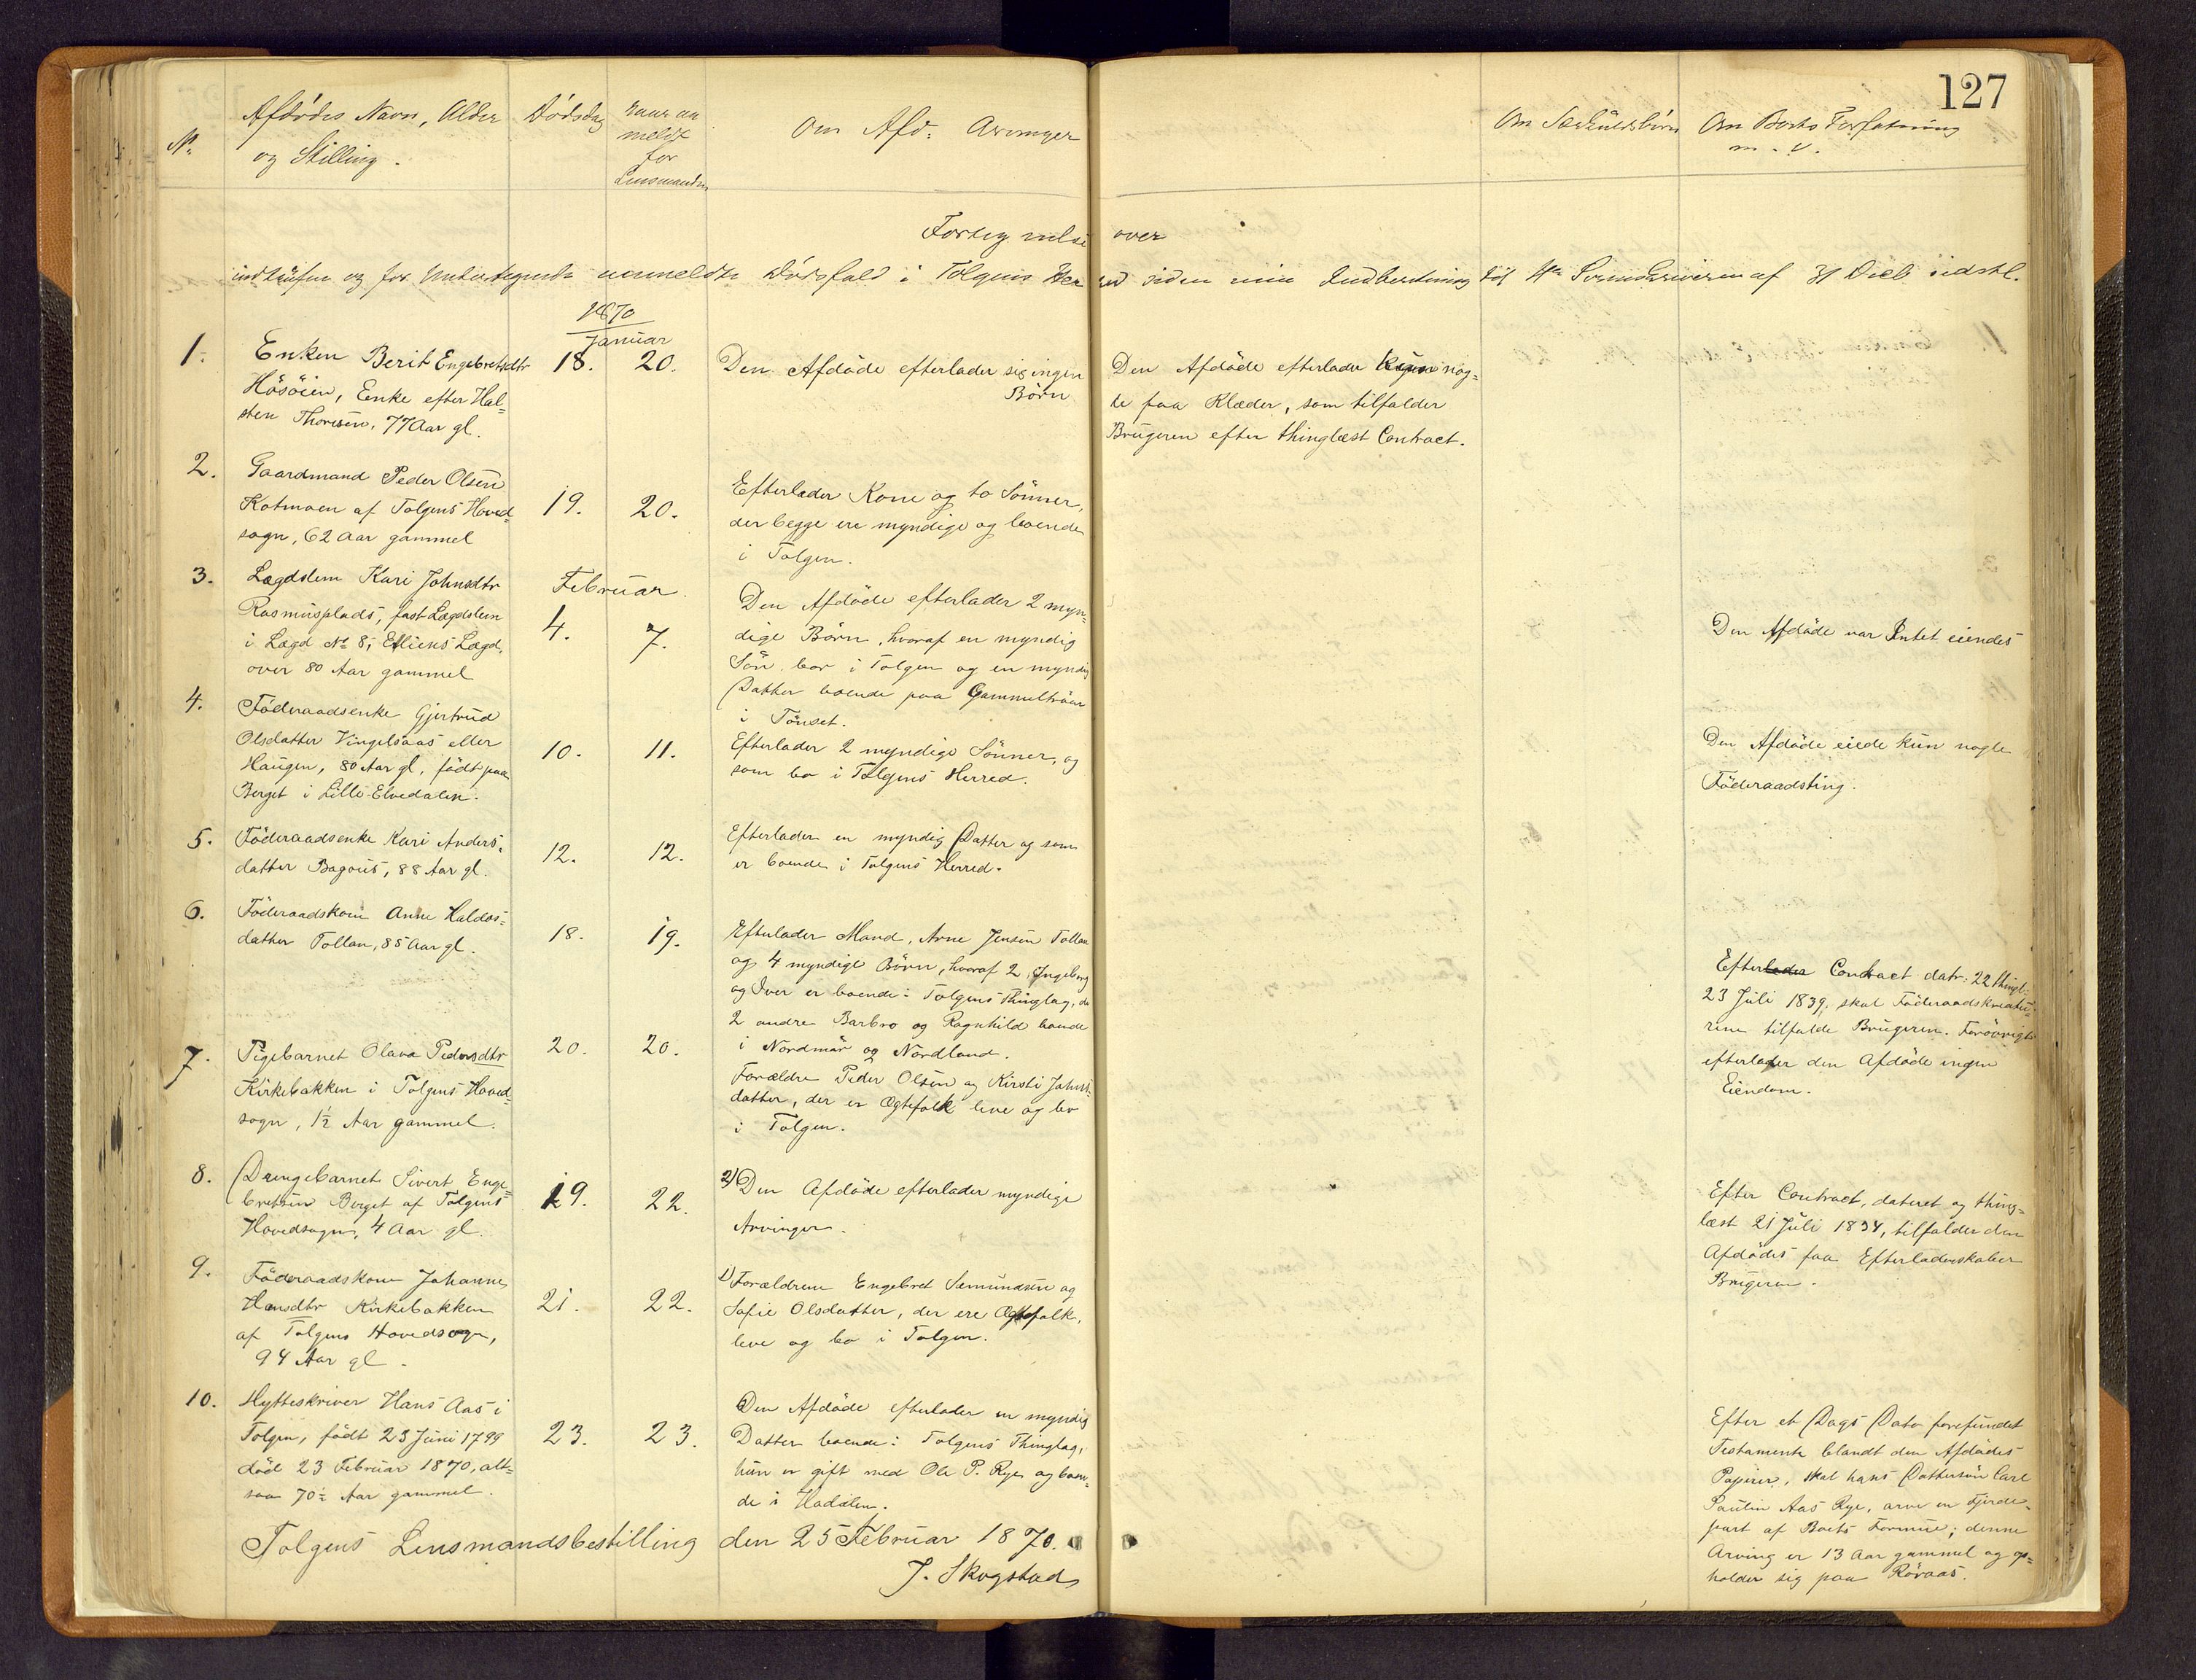 127
No
Afdödes Navn, Alder
og Stilling.
Dödsdag
naar an
meldt
for
Lensmanden
Om Afd: Arvinger
Om Særkuldsbörn
Om Boets Forfatning
m. v.
Fortegnelse over
indtrufne og for Undertegnede anmeldte Dödsfald i Tolgens Herred siden min Indberetning til Hr Sorenskriveren af 31 Decb. sidstl.
1870
Januar
1.
Enken Berit Engebretsdtr
Hösöien, Enke efter Hal=
sten Thoresen, 77 Aar gl.
18.
20.
Den Afdöde efterlader sig ingen
Börn
Den Afdöde efterlader kun nog=
le faa Klæder, som tilfalder
Brugeren efter thinglæst Contract.
2.
Gaardmand Peder Olsen
Kotmoen af Tolgens Hoved=
sogn, 62 Aar gammel
19.
20.
Efterlader Kone og to Sönner,
der begge ere myndige og boende
i Tolgen.
3.
Lægdslem Kari Johnsdtr
Rasmusplads, fast Lægdslem
i Lægd No 8, Lægd,
over 80 Aar gammel
Februar.
4.
7.
Den Afdöde efterlader 2 myn=
dige Börn, hvoraf en myndig
Sön bor i Tolgen og en myndig
Datter boende paa
i Tönset.
Den Afdöde var Intet eiendes
4.
Föderaadsenke Gjertrud
Olsdatter Vingelsaas eller
Haugen, 80 Aar gl, födt paa
Berget i Lille-Elvedalen.
10.
11.
Efterlader 2 myndige Sönner, og
som bo i Tolgens Herred.
Den Afdöde eiede kun nogle
Föderaadsting.
5.
Föderaadsenke Kari Anders=
datter Bagous, 88 Aar gl.
12.
12.
Efterlader en myndig Datter og som
er boende i Tolgens Herred.
6.
Föderaadskone Anne Haldos=
datter Tollan, 85 Aar gl.
18.
19.
Efterlader Mand, Arne Jensen Tollan
og 4 myndige Börn, hvoraf 2, Ingeborg
og Iver er boende i Tolgens Thinglag, de
2 andre Barbro og Ragnhild boende
i Nordmör og Nordland.
Efterlader Contract datr: 22 thingl:
23 Juli 1839, skal Föderaadskreatu=
rene tilfalde Brugeren. Forövrigt
efterlader den Afdöde ingen
Eiendom.
7.
Pigebarnet Olava Pedersdtr
Kirkebakken i Tolgens Hoved=
sogn, 1½ Aar gammel.
20.
20.
Forældre Peder Olsen og Kirsti Johns=
datter, der er Ægtefolk leve og bo
i Tolgen.
8.
Drengebarnet Sivert Enge=
bretsen Berget af Tolgens
Hovedsogn, 4 Aar gl.
19.
22.
2) Den Afdöde efterlader myndige
Arvinger.
Efter Contract, dateret og thing=
læst 21 Juli 1834, tilfalder den
Afdödes faa Efterladenskaber
Brugeren.
9.
Föderaadskone Johanne
Hansdtr Kirkebakken
af Tolgens Hovedsogn,
94 Aar gl.
21.
22.
1) Forældrene Engebret Semundsen og
Sofie Olsdatter, der ere Ægtefolk,
leve og bo i Tolgen.
10.
Hytteskriver Hans Aas i
Tolgen, födt 23 Juni 1799
död 23 Februar 1870, alt=
saa 70½ Aar gammel.
23.
23.
Den Afdöde efterlader en myndig
Datter boende i Tolgens Thinglag,
hun er gift med Ole P. Rye, og boen=
de i Hodalen.
Efter et Dags Dato forefundet
Testamente blandt den Afdödes
Papirer, skal hans Dattersön Carl
Paulin Aas Rye, arve en Fjerde=
part af Boets Formue; denne
Arving er 13 Aar gammel og op=
holder sig paa Röraas.
Tolgens Lensmandsbestilling den 25 Februar 1870.
J. Skogstad